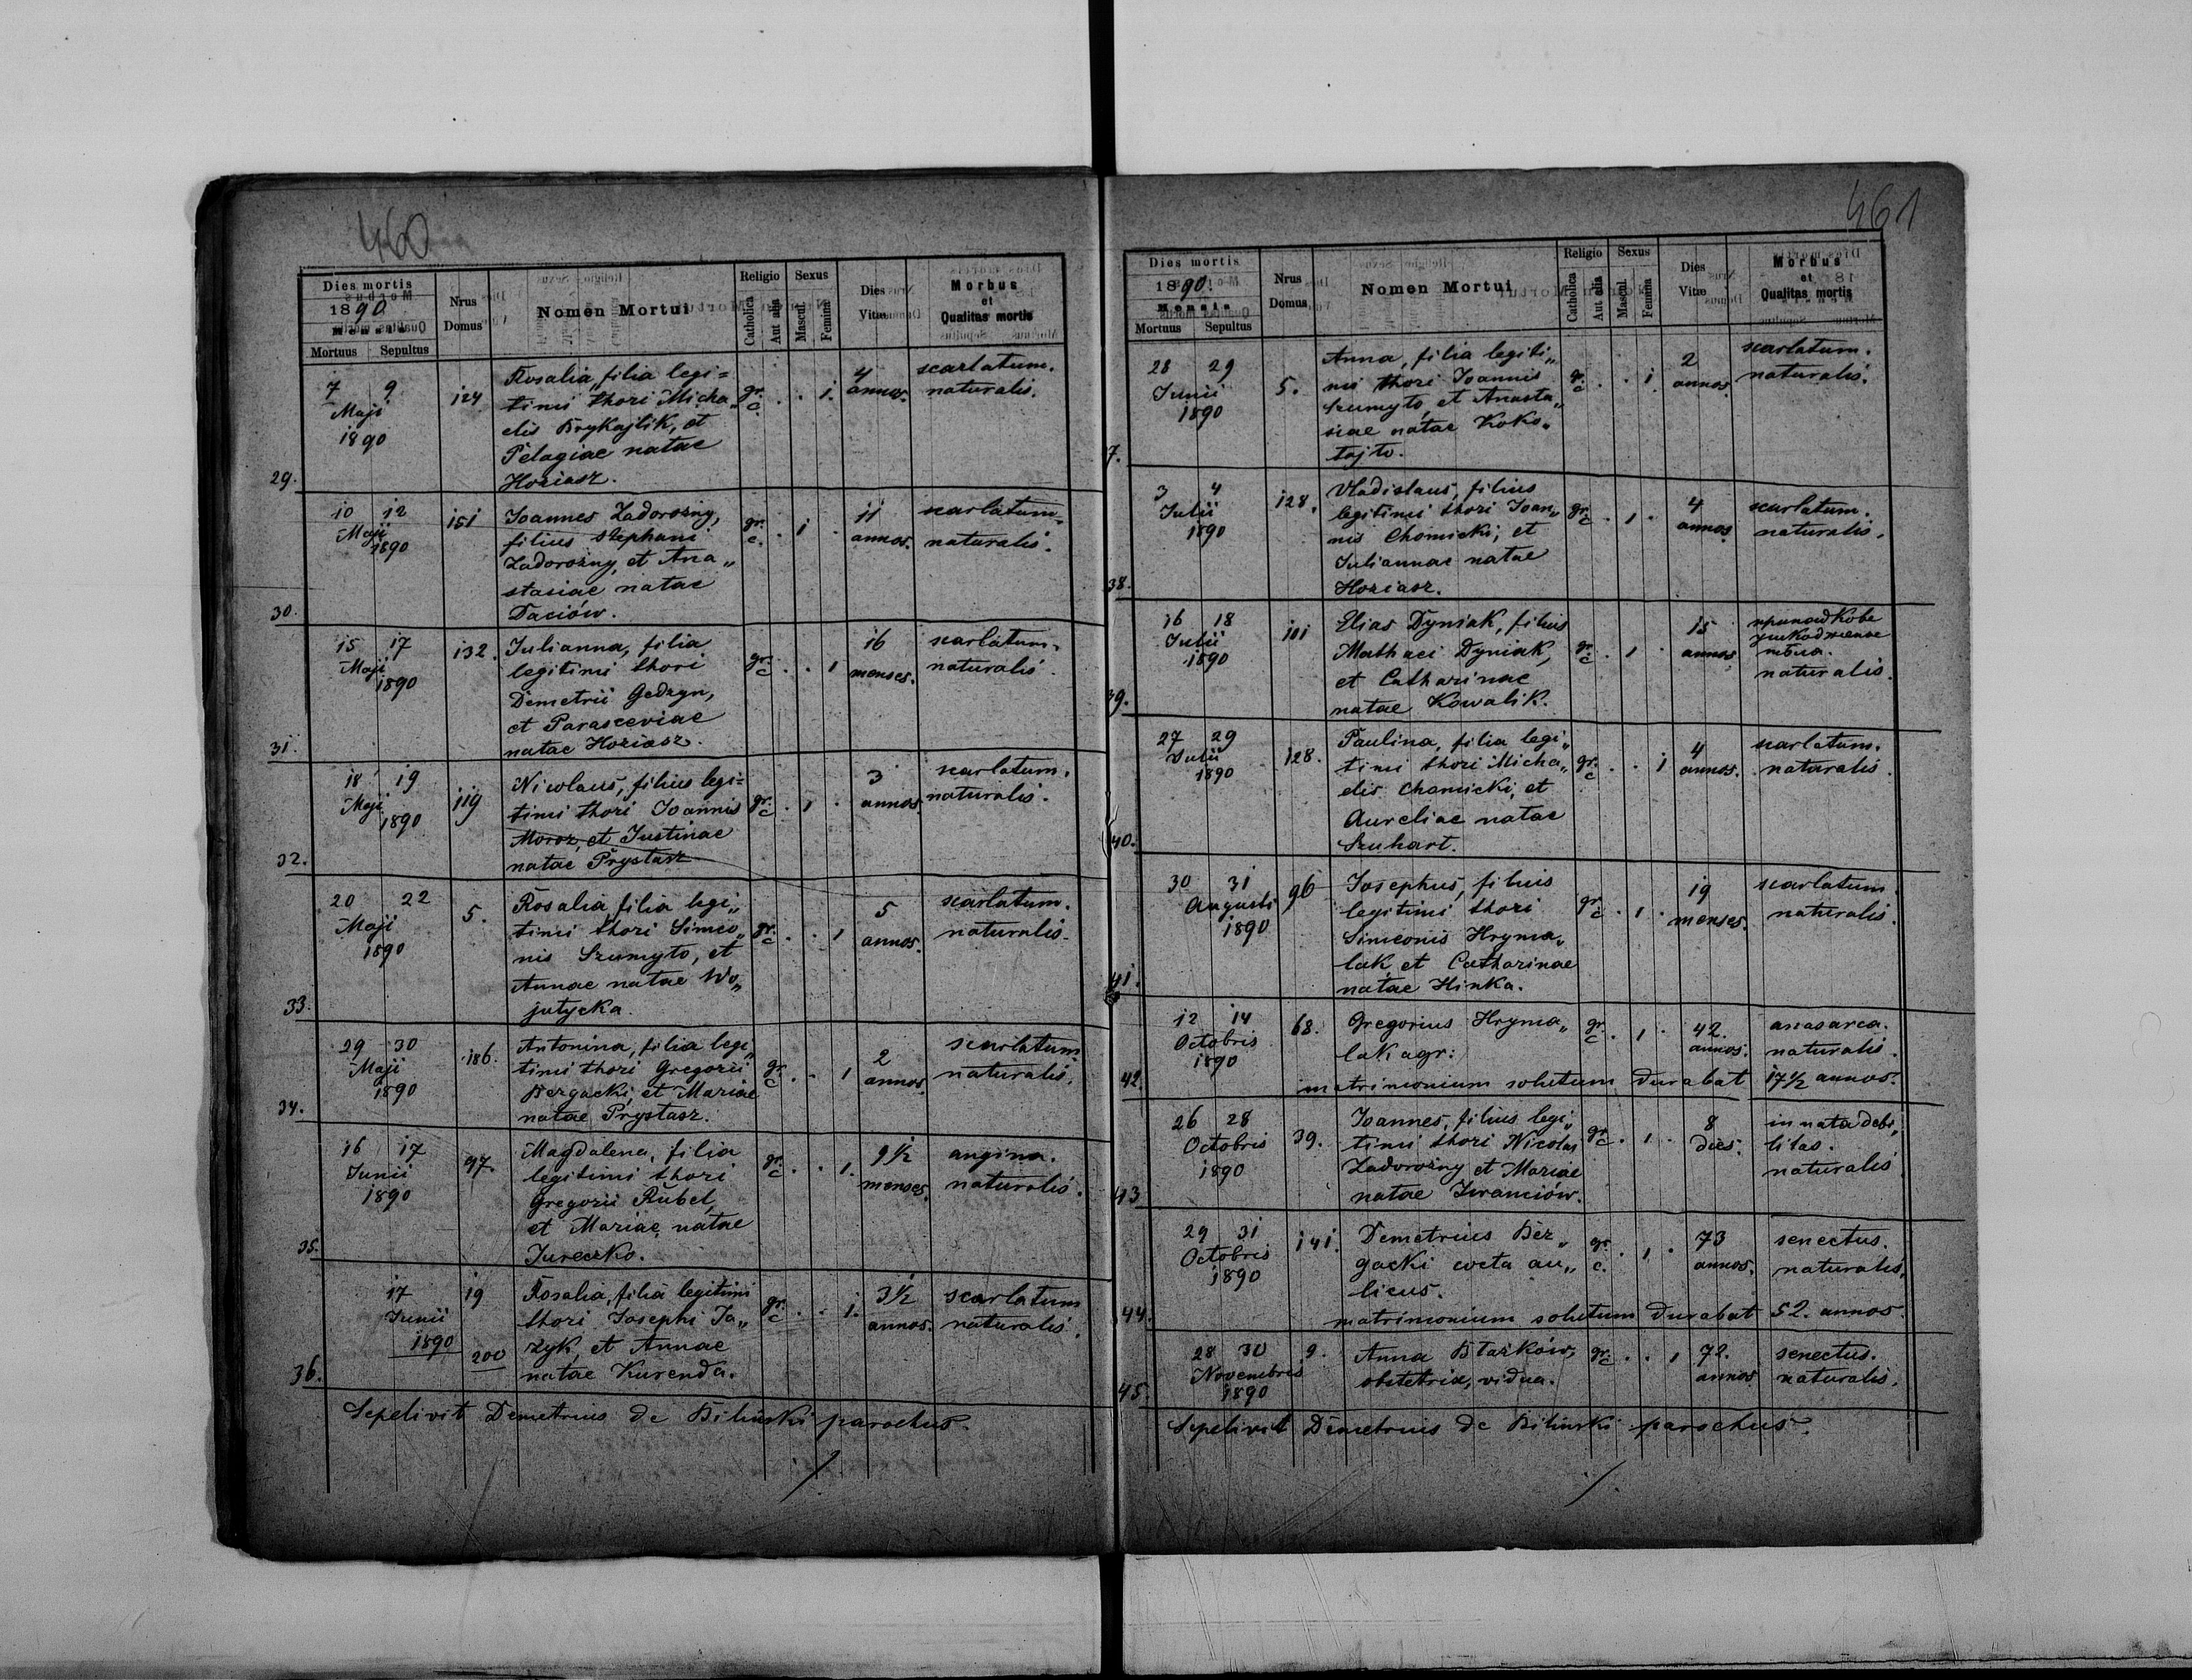 460
Dies mortis
1890
Mensis
Mortuus Sepultus
Nrus Domus
Nomen Mortui
Religio
Catholica
Aut alia
Sexus
Mascul.
Femina
Dies Vitæ
Morbus et Qualitas mortis
29.
7 9 Maji 1890
124
Rosalia, filia legi=
timi thori Micha„
elis Brykajlik, et
Pelagiae natae
Horiasz.
gr. c. . . 1.
4 annos.
scarlatum.
naturalis.
30.
10 12 Maji 1890
151
Joannes Zadorożny,
filius Stephani
Zadorożny, et Ana„
stasiae natae
Daciów.
gr. c. . 1 .
11 annos.
scarlatum.
naturalis.
31.
15 17 Maji 1890
132.
Julianna, filia
legitimi thori
Demetrii Gedzyn,
et Parasceviae
natae Horiasz.
gr. c . . 1
16 menses.
scarlatum.
naturalis.
32.
18 19 Maji 1890
119
Nicolaus, filius legi=
timi thori Joannis
Moroz, et Justinae
natae Prystasz
gr. c . 1 .
3 annos.
scarlatum.
naturalis.
33.
20 22 Maji 1890
5.
Rosalia, filia legi„
timi thori Simeo„
nis Szumyło, et
Annae natae Wo„
jutycka.
gr. c . . 1
5 annos.
scarlatum.
naturalis.
34.
29 30 Maji 1890
186.
Antonina, filia legi„
timi thori Gregorii
Bergacki, et Mariae
natae Prystasz.
gr. c . . 1
2 annos.
scarlatum
naturalis.
35.
16 17 Junii 1890
97.
Magdalena, filia
legitimi thori
Gregorii Rubel,
et Mariae natae
Jureczko.
gr. c . . 1.
9½ menses.
angina.
naturalis.
36.
17 19 Junii 1890
200
Rosalia, filia legitimi
thori Josephi Ja„
zyk, et Annae
natae Kurenda.
gr. c . . 1.
3½ annos.
scarlatum
naturalis.
Sepelivit Demetrius de Biliński parochus.
461
Dies mortis
1890.
Mensis
Mortuus Sepultus
Nrus Domus
Nomen Mortui
Religio
Catholica
Aut alia
Sexus
Mascul.
Femina
Dies Vitæ
Morbus et Qualitas mortis
7.
28 29 Junii 1890
5.
Anna, filia legiti„
mi thori Joannis
Szumyło, et Anasta„
siae natae Koko„
tajło.
gr. c . . 1
2 annos.
scarlatum.
naturalis.
38.
3 4 Julii 1890
128.
Vladislaus, filius
legitimi thori Joan„
nis Chomicki, et
Juliannae natae
Horiasz.
gr. c . 1 .
4 annos.
scarlatum.
naturalis.
39.
16 18 Julii 1890
101
Elias Dyniak, filius
Mathaei Dyniak,
et Catharinae
natae Kowalik.
gr. c . 1 .
15 annos.
припадкове
ушкодженне
тѣла.
naturalis.
40.
27 29 Julii 1890
128.
Paulina, filia legi„
timi thori Micha„
elis Chomicki, et
Aureliae natae
Szuhart.
gr. c . . 1
4 annos.
scarlatum.
naturalis.
41.
30 31 Augusti 1890
96
Josephus, filius
legitimi thori
Simeonis Hryma„
lak, et Catharinae
natae Hinka.
gr. c . 1 .
19 menses.
scarlatum.
naturalis.
42.
12 14 Octobris 1890
68.
Gregorius Hryma„
lak agr:
gr. c . 1 .
42. annos.
anasarca.
naturalis.
matrimonium solutum durabat 17½ annos.
43
26 28 Octobris 1890
39.
Joannes, filius legi„
timi thori Nicolai
Zadorożny et Mariae
natae Iwanciów.
gr. c . 1 .
8 dies.
innata debi„
litas.
naturalis
44.
29 31 Octobris 1890
141.
Demetrius Ber„
gacki cocta au„
licus.
gr. c. . 1 .
73 annos.
senectus.
naturalis.
matrimonium solutum durabat 52. annos.
45.
28 30 Novembris 1890
9.
Anna Błażków,
obstetrix, vidua.
gr. c . . 1
72. annos
senectus.
naturalis.
Sepelivit Demetrius de Biliński parochus.